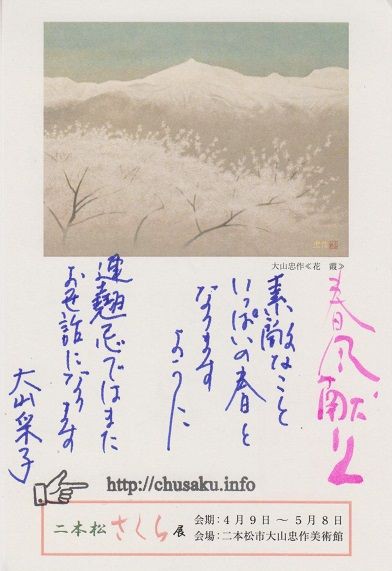 忠作
大山忠作≪花　霞≫
春風献上
素敵なこと
いっぱいの春と
なります
ように
連翹忌ではまた
お世話になります
大山采子
http://chusaku.info
二本松さくら展
会期：４月９日～５月８日
会場：二本松市大山忠作美術館